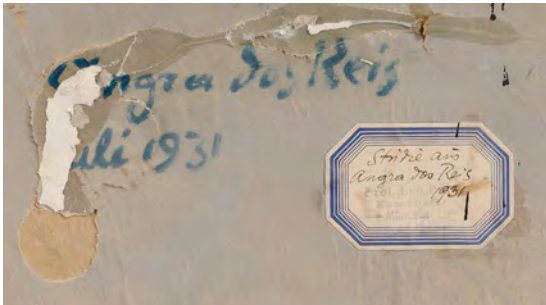 Angra dos Reis
Juli 1931
Studie aus
Angra dos Reis
1931